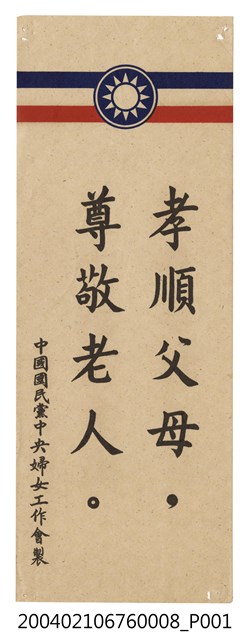 孝順父母，
尊敬老人。
中國國民黨中央婦女工作會製
200402106760008_P001